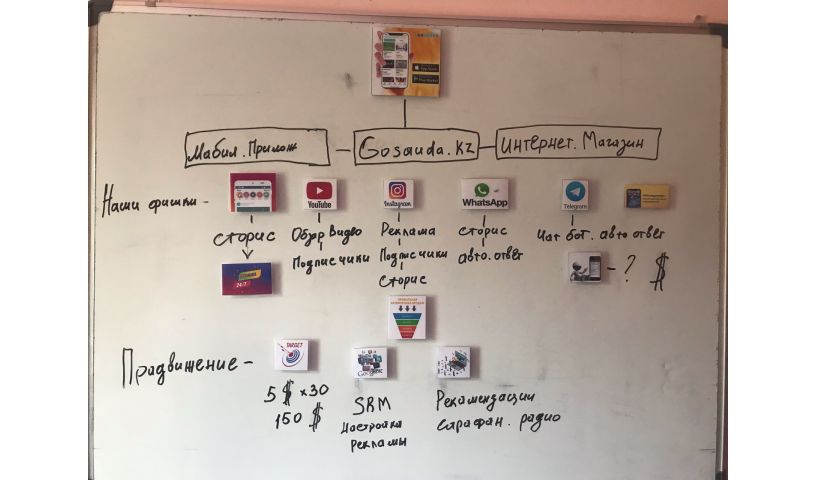 Мабил. Прилож — Gosauda.kz — Интернет. Магазин
Наши фишки -
YouTube
Instagram
WhatsApp
Telegram
сторис
Обзор видео
Реклама
сторис
Чат бот. авто ответ
Подписчики
Подписчики
авто. ответ
сторис
24/7
- ? $
TARGET
Прадвижение -
5 $ x 30
150 $
SRM
Настройка
рекламы
Рекамендации
сарафан. радио